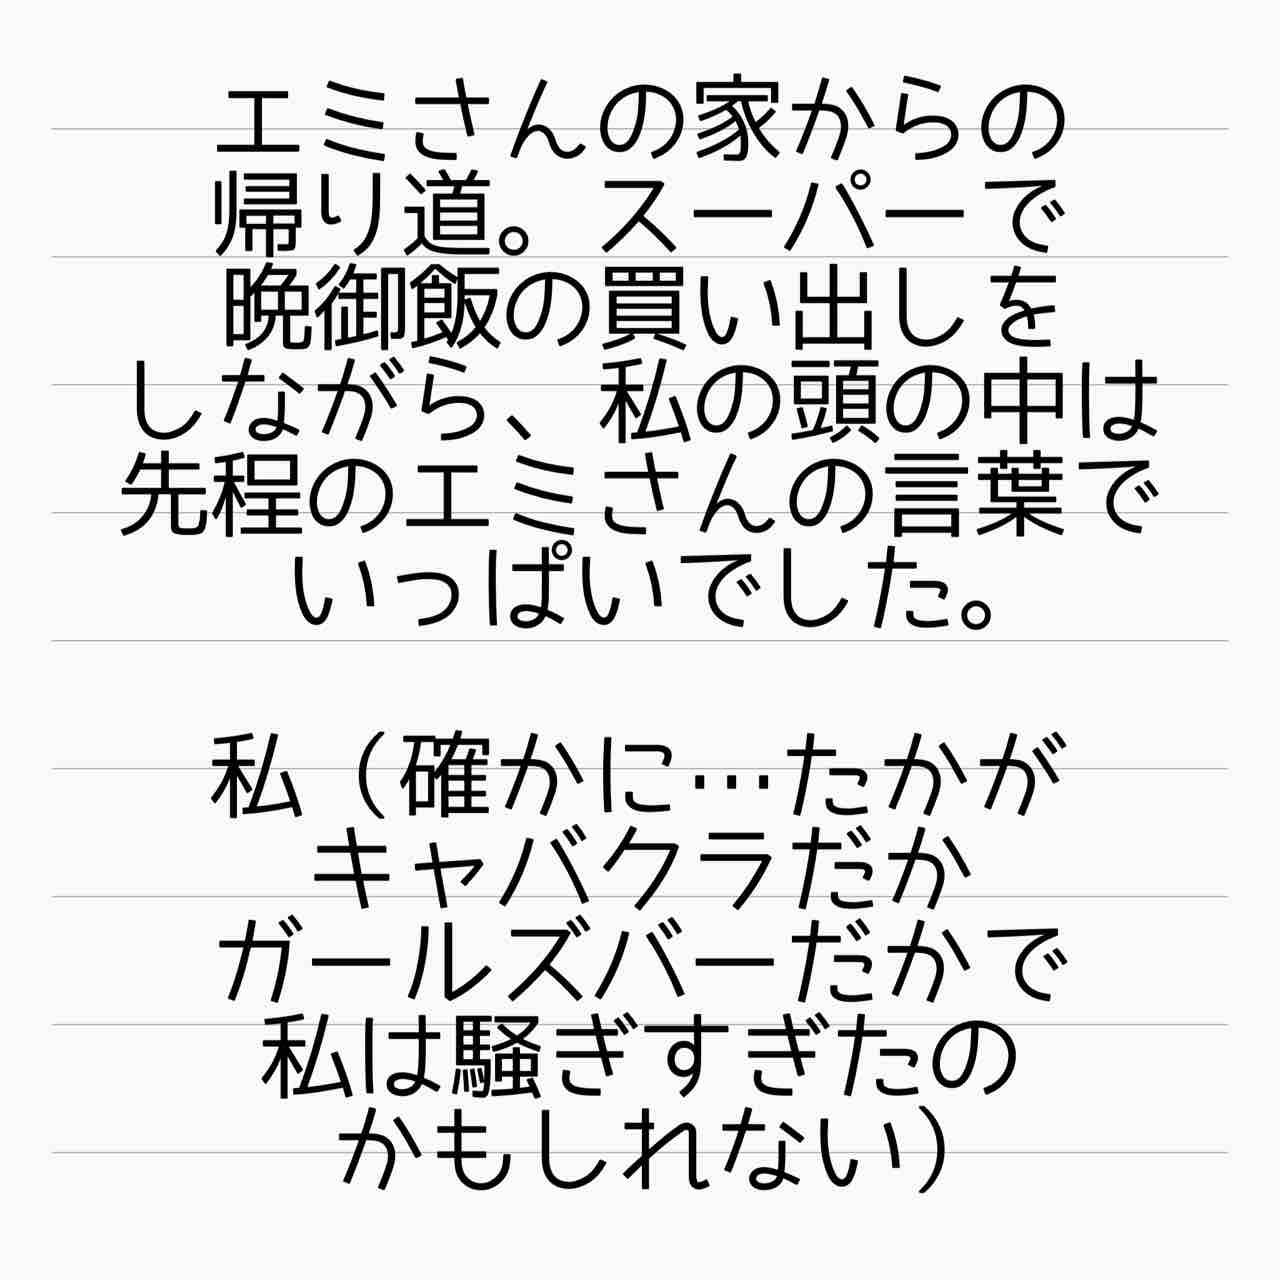 エミさんの家からの
帰り道。スーパーで
晩御飯の買い出しを
しながら、私の頭の中は
先程のエミさんの言葉で
いっぱいでした。
私（確かに…たかが
キャバクラだか
ガールズバーだかで
私は騒ぎすぎたの
かもしれない）